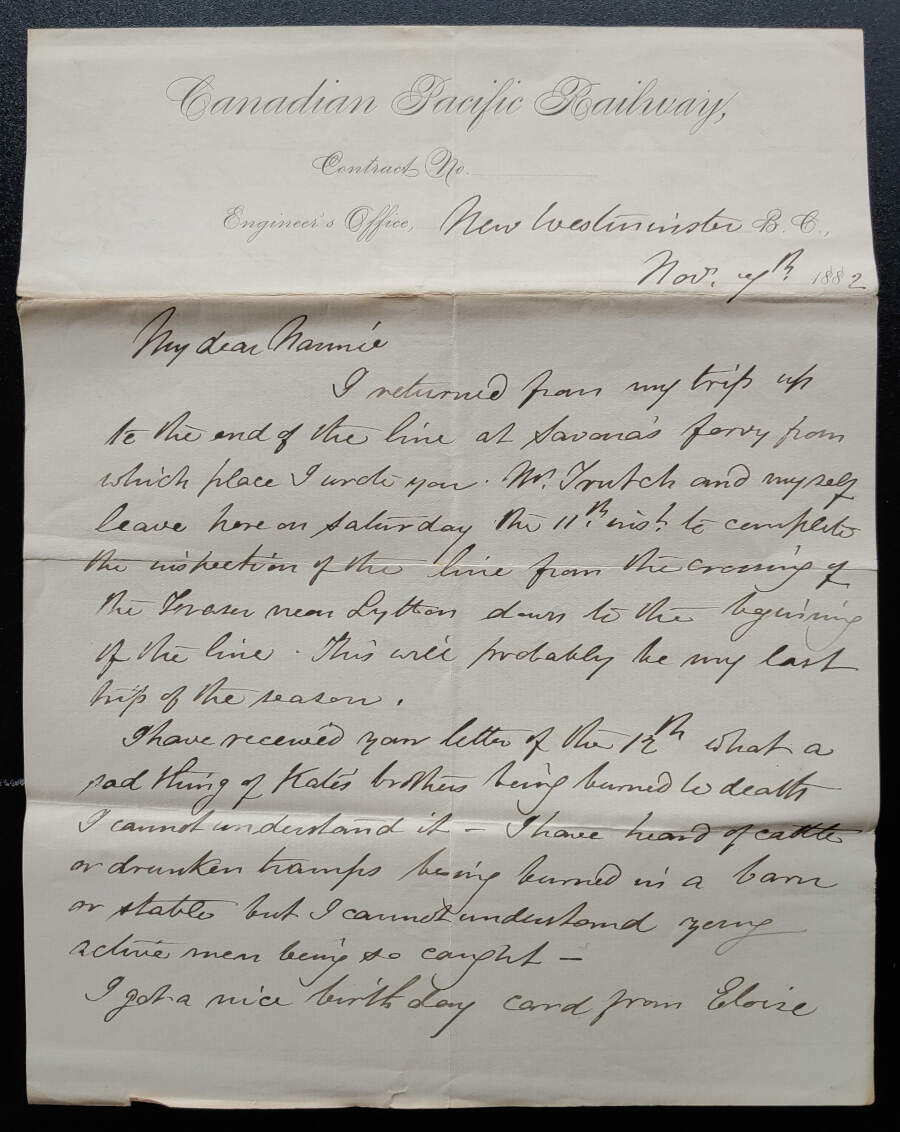 Canadian Pacific Railway,
Contract No.
Engineer's Office, New Westminster B. C.,
Nov. 7th 1882
My dear Nannie
I returned from my trip up
to the end of the line at Savona's ferry from
which place I wrote you. Mr. Trutch and myself
leave here on Saturday the 11th inst. to complete
the inspection of the line from the crossing of
the Fraser near Lytton down to the begining
of the line. This will probably be my last
trip of the season.
I have received your letter of the 12th what a
sad thing of Kate's brothers being burned to death
I cannot understand it – I have heard of cattle
or drunken tramps being burned in a barn
or stable but I cannot understand young
active men being so caught –
I got a nice birth day card from Eloise